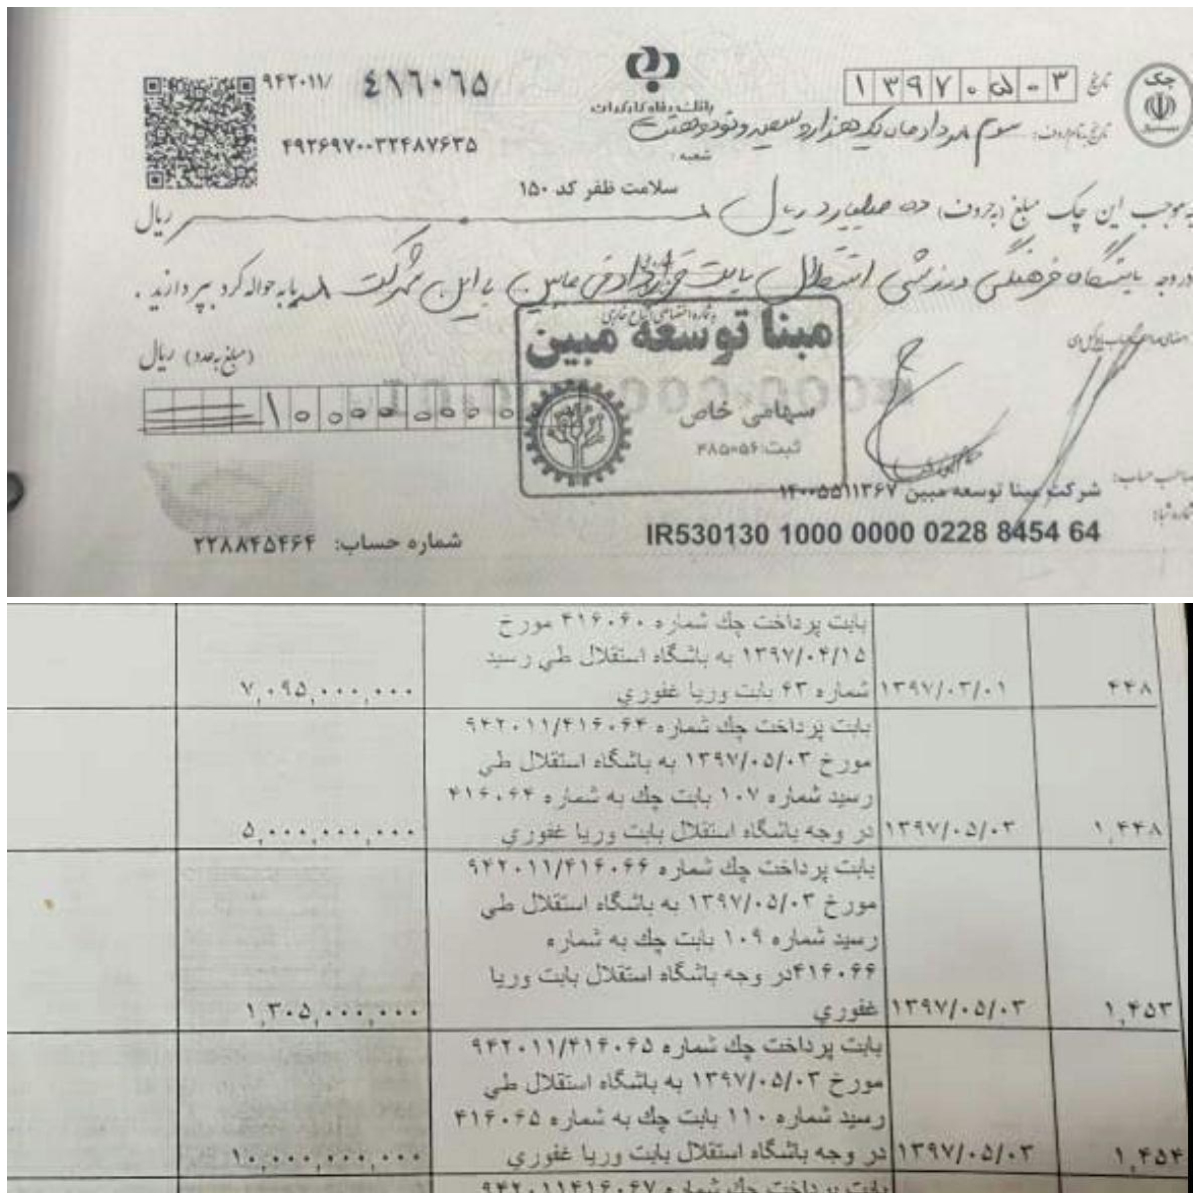 تاریخ ۱۳۹۷۰۵۰۳
چک
۹۴۲۰۱۱/ ٤١٦٠٦٥
بانک رفاه کارگران
سوم مرداد ماه یک هزار و سیصد و نود و هفت
۴۹۲۶۹۷۰۰۳۲۴۸۷۶۳۵
شعبه :
سلامت ظفر کد ۱۵۰
به موجب این چک مبلغ (بحروف) ده میلیارد ریال ریال
در وجه باشگاه فرهنگی ورزشی استقلال بابت قرارداد فی مابین با این شرکت یا به حواله کرد بپردازید .
مبنا توسعه مبین
(مبلغ به عدد) ریال
سهامی خاص
۱۰۰۰۰۰۰۰۰۰۰
ثبت: ۴۸۵۰۵۶
صاحب حساب: شرکت مبنا توسعه مبین ۱۴۰۰۵۵۱۱۳۶۷
IR530130 1000 0000 0228 8454 64
شماره حساب: ۲۲۸۸۴۵۴۶۴
بابت پرداخت چك شماره ۴۱۶۰۶۰ مورخ
۱۳۹۷/۰۴/۱۵ به باشگاه استقلال طي رسيد
۴۴۸ ۱۳۹۷/۰۳/۰۱ شماره ۶۳ بابت وريا غفوري ۷,۰۹۵,۰۰۰,۰۰۰
بابت پرداخت چك شماره ۹۴۲۰۱۱/۴۱۶۰۶۴
مورخ ۱۳۹۷/۰۵/۰۳ به باشگاه استقلال طي
رسيد شماره ۱۰۷ بابت چك به شماره ۴۱۶۰۶۴
۱,۴۴۸ ۱۳۹۷/۰۵/۰۳ در وجه باشگاه استقلال بابت وريا غفوري ۵,۰۰۰,۰۰۰,۰۰۰
بابت پرداخت چك شماره ۹۴۲۰۱۱/۴۱۶۰۶۶
مورخ ۱۳۹۷/۰۵/۰۳ به باشگاه استقلال طي
رسيد شماره ۱۰۹ بابت چك به شماره
۴۱۶۰۶۶در وجه باشگاه استقلال بابت وريا
۱,۴۵۳ ۱۳۹۷/۰۵/۰۳ غفوري ۱,۳۰۵,۰۰۰,۰۰۰
بابت پرداخت چك شماره ۹۴۲۰۱۱/۴۱۶۰۶۵
مورخ ۱۳۹۷/۰۵/۰۳ به باشگاه استقلال طي
رسيد شماره ۱۱۰ بابت چك به شماره ۴۱۶۰۶۵
۱,۴۵۴ ۱۳۹۷/۰۵/۰۳ در وجه باشگاه استقلال بابت وريا غفوري ۱۰,۰۰۰,۰۰۰,۰۰۰
بابت پرداخت چك شماره ۹۴۲۰۱۱۴۱۶۰۶۷